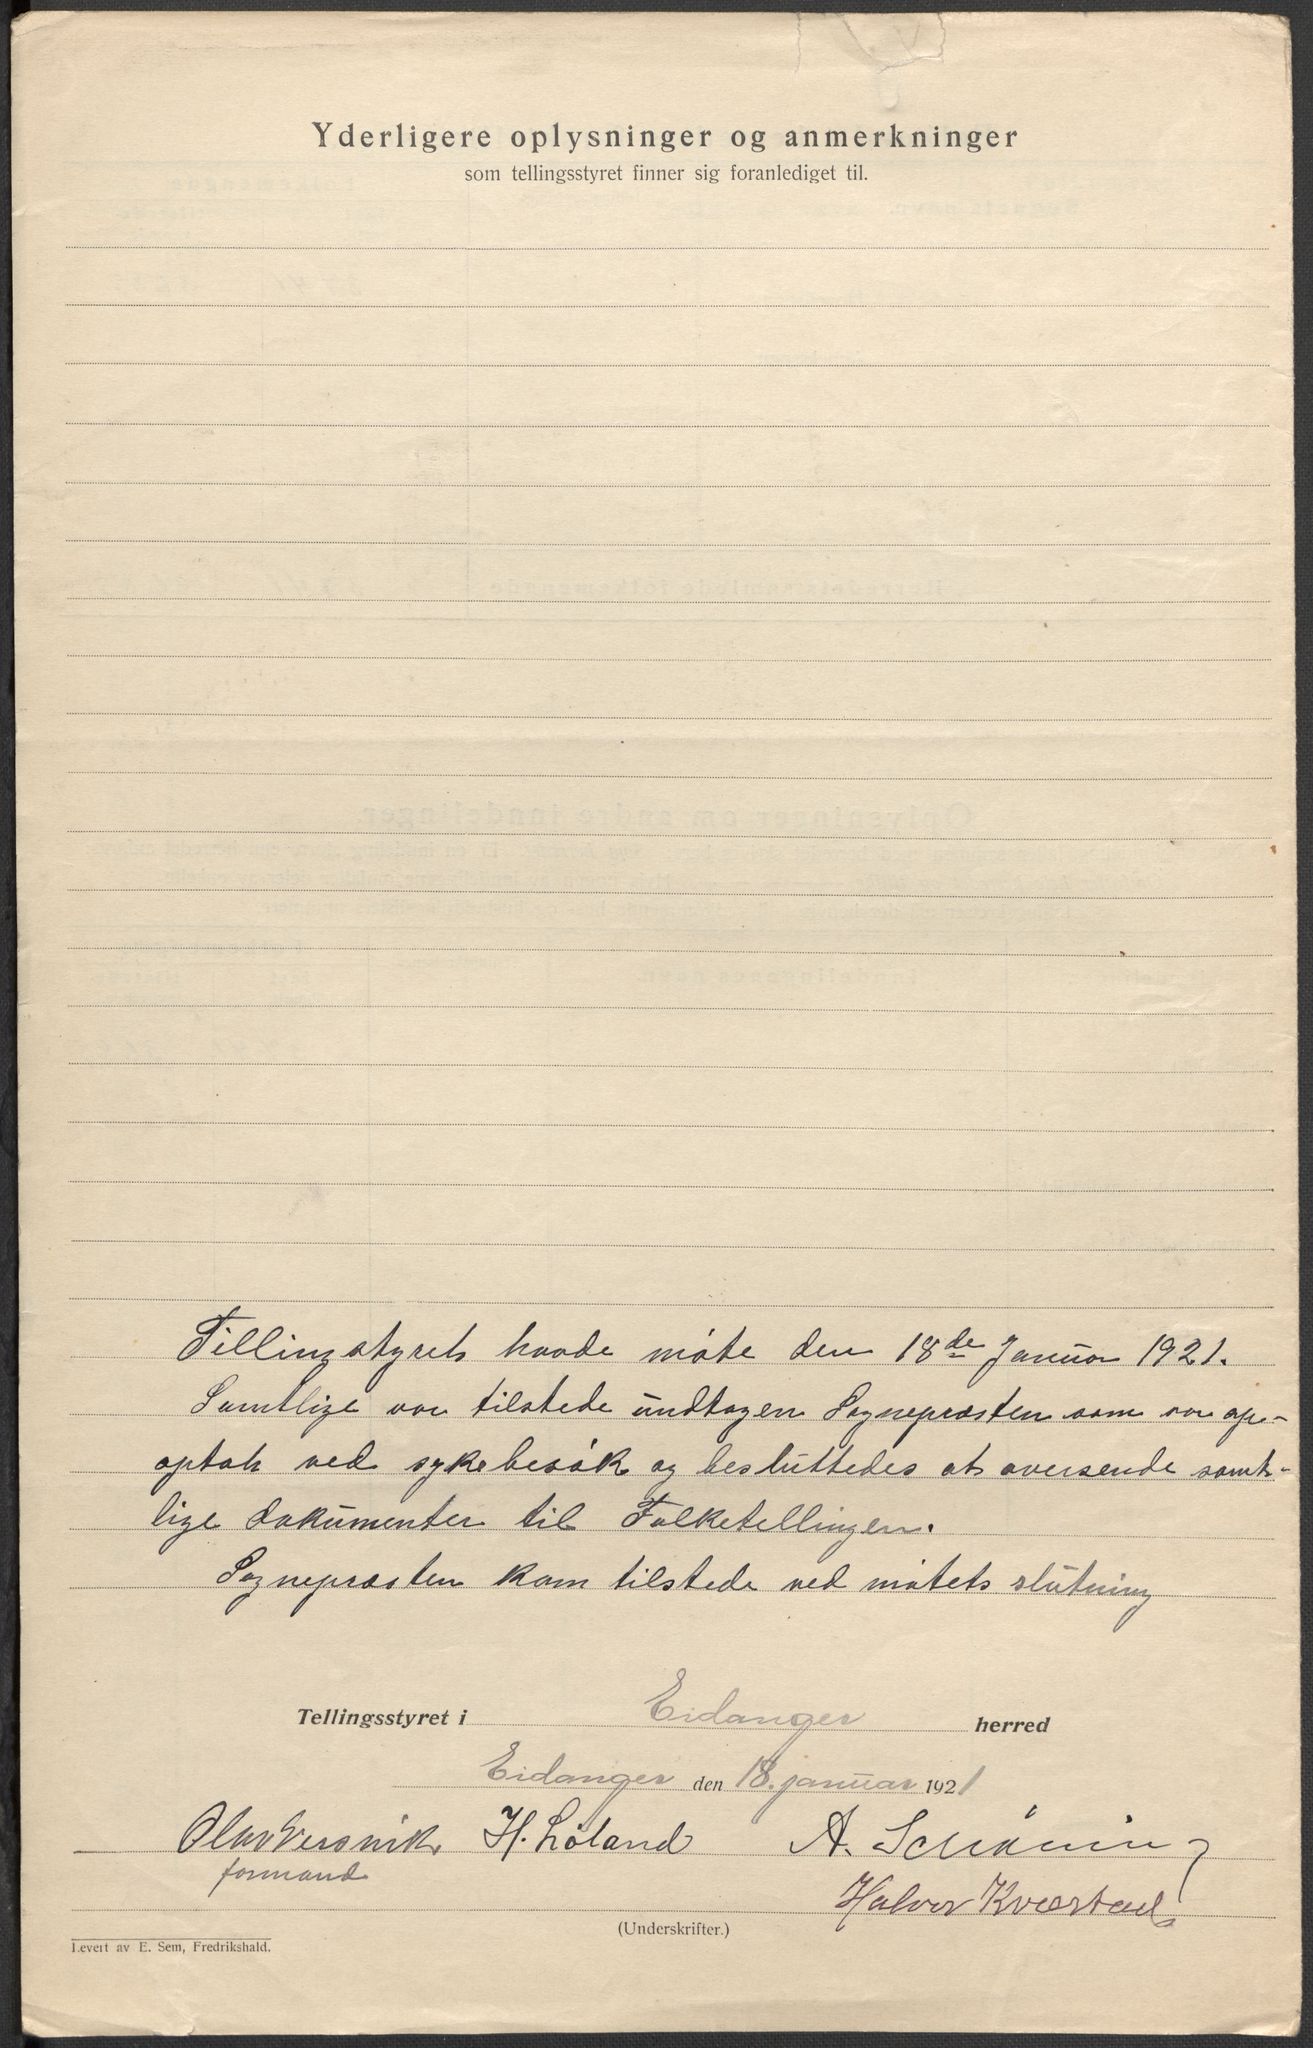 Yderligere oplysninger og anmerkninger
som tellingsstyret finner sig foranlediget til.
Tellingstyret havde møte den 18de Januar 1921.
Samtlige var tilstede undtagen Sognepræsten som var op-
optat ved sykebesøk og besluttedes at oversende samt-
lige dokumenter til Folketellingen.
Sognepræsten kom tilstede ved møtets slutning
Tellingsstyret i Eidanger herred
Eidanger den 18. januar 1921
Olav Versvik H. Løland A. Schøning
formand
Halvor Kværstad
(Underskrifter.)
Levert av E. Sem, Fredrikshald.